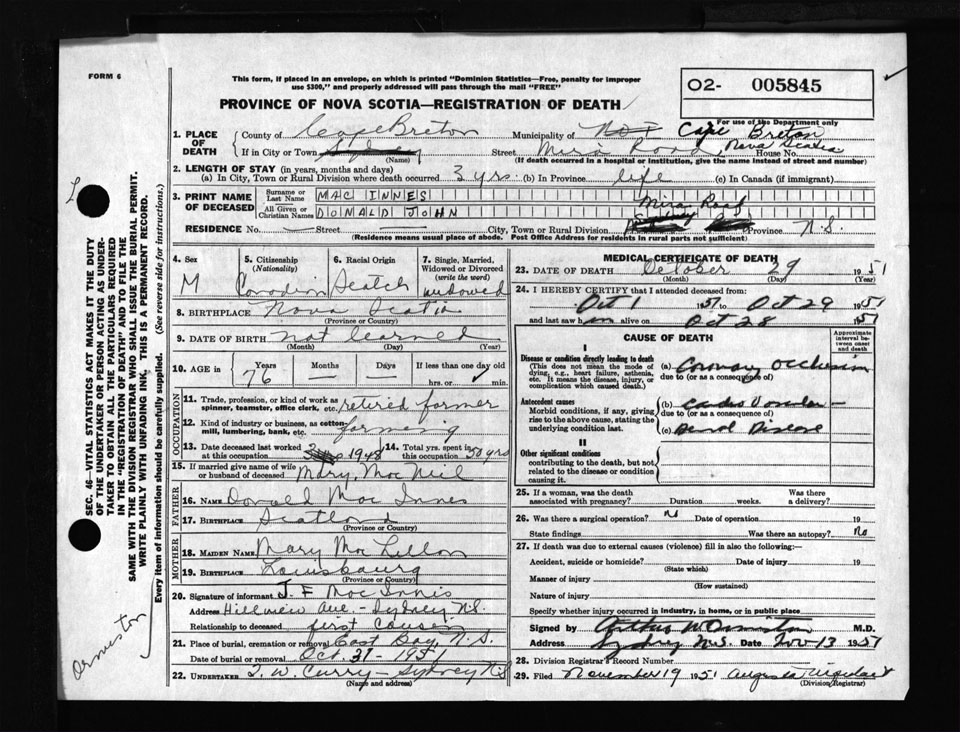 FORM 6
This form, if placed in an envelope, on which is printed "Dominion Statistics—Free, penalty for improper
use $300," and properly addressed will pass through the mail "FREE"
O2- 005845
For use of the Department only
PROVINCE OF NOVA SCOTIA—REGISTRATION OF DEATH
1. PLACE OF DEATH
County of Cape Breton Municipality of Cape Breton
If in City or Town Sydney (Name) Street Mira Road, Nova Scotia House No.
(If death occurred in a hospital or institution, give the name instead of street and number)
2. LENGTH OF STAY (in years, months and days)
(a) In City, Town or Rural Division where death occurred 3 yrs (b) In Province life (c) In Canada (if immigrant)
3. PRINT NAME OF DECEASED
Surname or Last Name MAC INNES
All Given or Christian Names DONALD JOHN
RESIDENCE No. — Street — City, Town or Rural Division Mira Road Province N.S.
(Residence means usual place of abode. Post Office Address for residents in rural parts not sufficient)
4. Sex M
5. Citizenship (Nationality) Canadian
6. Racial Origin Scotch
7. Single, Married, Widowed or Divorced (write the word) widowed
8. BIRTHPLACE Nova Scotia
(Province or Country)
9. DATE OF BIRTH not learned
(Month) (Day) (Year)
10. AGE in Years 76 Months — Days — If less than one day old
hrs. or min.
OCCUPATION
11. Trade, profession, or kind of work as
spinner, teamster, office clerk, etc. retired farmer
12. Kind of industry or business, as cotton-
mill, lumbering, bank, etc. farming
13. Date deceased last worked at this occupation 1948
14. Total yrs. spent in this occupation 50 yrs
15. If married give name of wife
or husband of deceased Mary MacNeil
FATHER
16. NAME Donald Mac Innes
17. BIRTHPLACE Scotland
(Province or Country)
MOTHER
18. MAIDEN NAME Mary MacLellan
19. BIRTHPLACE Louisbourg
(Province or Country)
20. Signature of informant J. F MacInnis
Address Hillview Ave. - Sydney N.S.
Relationship to deceased first cousin
21. Place of burial, cremation or removal East Bay, N.S.
Date of burial or removal Oct. 31 - 1951
22. UNDERTAKER T. W. Curry - Sydney N.S
(Name and address)
MEDICAL CERTIFICATE OF DEATH
23. DATE OF DEATH October 29 1951
(Month) (Day) (Year)
24. I HEREBY CERTIFY that I attended deceased from:
Oct 1 1951 to Oct 29 1951
and last saw him alive on Oct 28 1951
CAUSE OF DEATH
Approximate interval between onset and death
I
Disease or condition directly leading to death
(This does not mean the mode of
dying, e.g., heart failure, asthenia,
etc. It means the disease, injury, or
complication which caused death.
(a) Coronary Occlusion
due to (or as a consequence of)
Antecedent causes
Morbid conditions, if any, giving
rise to the above cause, stating the
underlying condition last.
(b) Cardio Vascular -
due to (or as a consequence of)
(c) Renal Disease
II
Other significant conditions
contributing to the death, but not
related to the disease or condition
causing it.
25. If a woman, was the death
associated with pregnancy? Duration weeks. Was there a delivery?
26. Was there a surgical operation? No Date of operation 19
State findings Was there an autopsy? No
27. If death was due to external causes (violence) fill in also the following:—
Accident, suicide or homicide? Date of injury 19
(State which)
Manner of injury
(How sustained)
Nature of injury
Specify whether injury occurred in industry, in home, or in public place
Signed by Arthur W Ormiston M.D.
Address Sydney N.S. Date Nov 13 1951
28. Division Registrar's Record Number
29. Filed November 19 1951 Augusta
(Division Registrar)
SEC. 46—VITAL STATISTICS ACT MAKES IT THE DUTY
OF THE UNDERTAKER OR PERSON ACTING AS UNDER-
TAKER TO OBTAIN ALL THE PARTICULARS REQUIRED
IN THE "REGISTRATION OF DEATH" AND TO FILE THE
SAME WITH THE DIVISION REGISTRAR WHO SHALL ISSUE THE BURIAL PERMIT.
WRITE PLAINLY WITH UNFADING INK. THIS IS A PERMANENT RECORD.
Every item of information should be carefully supplied. (See reverse side for instructions.)
Ormiston